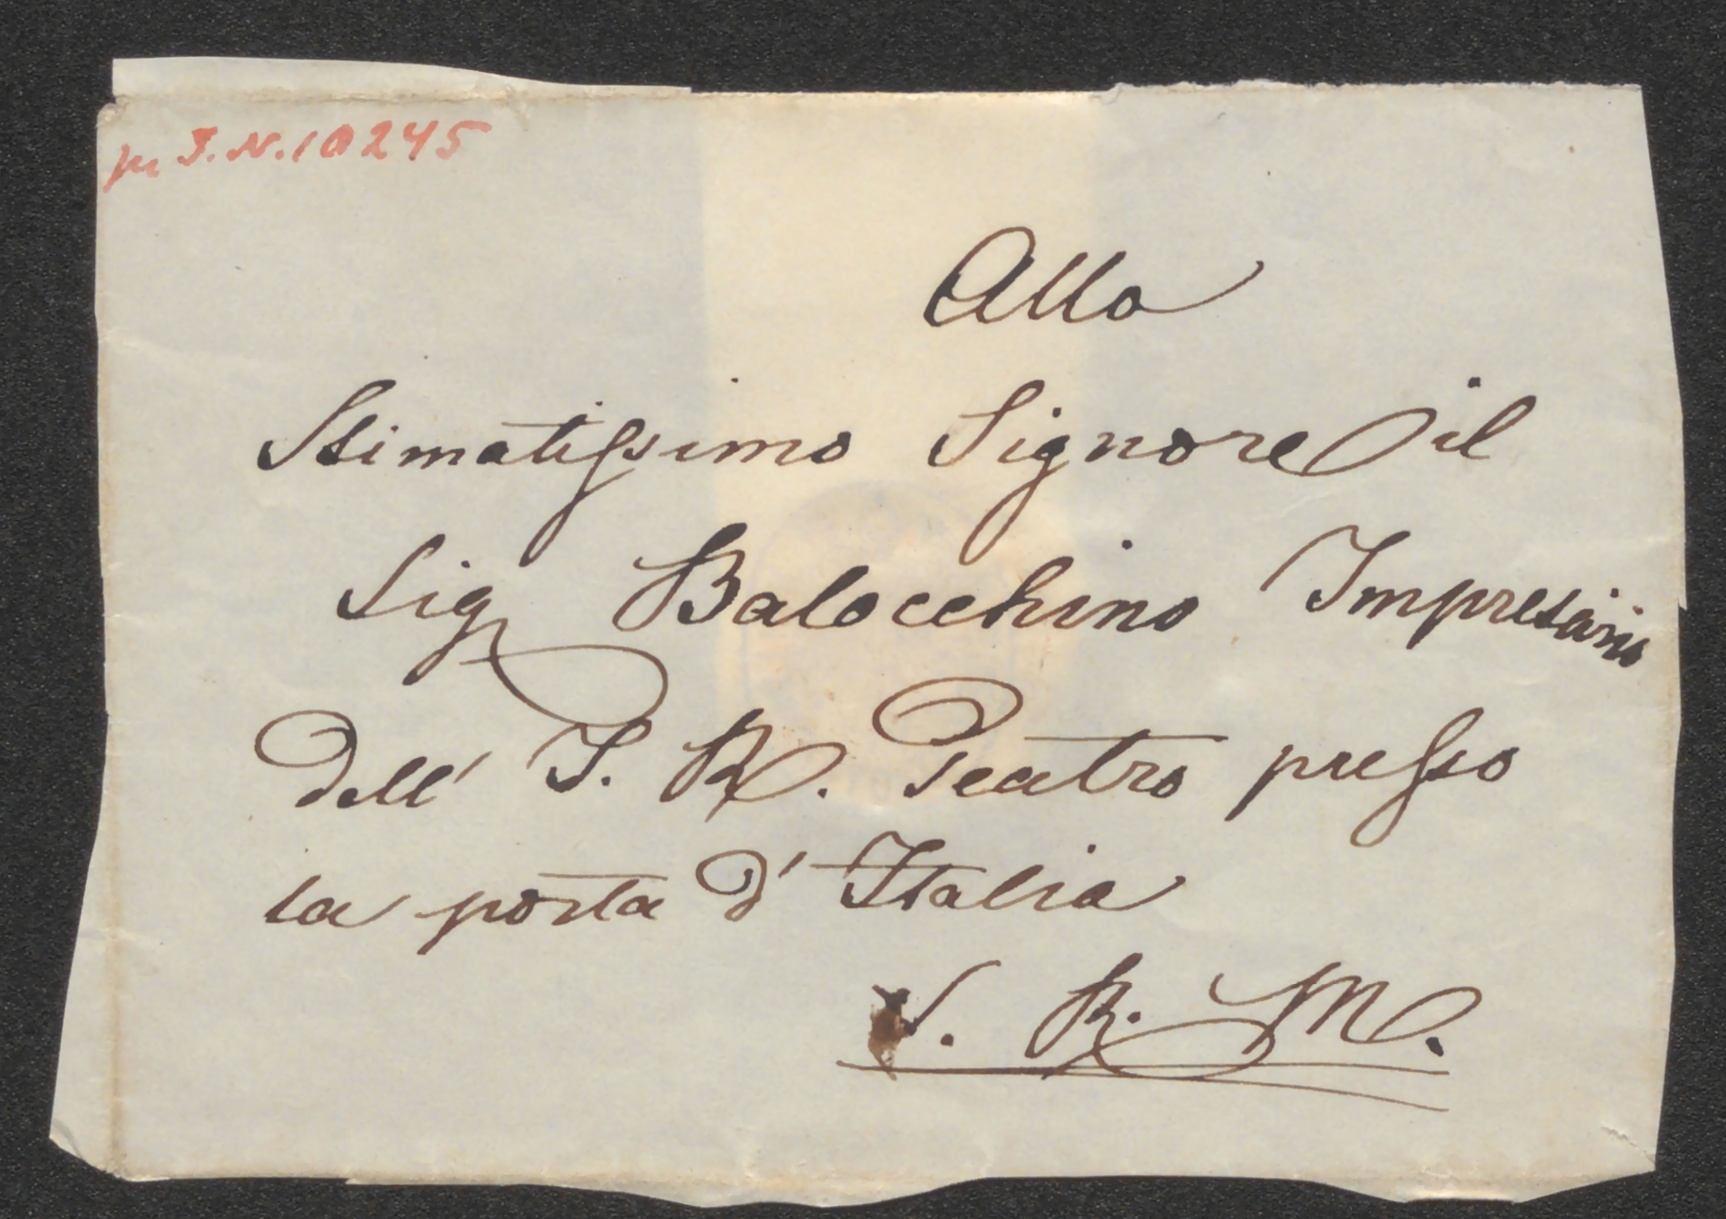 zu I.N. 10245
Allo
Stimatissimo Signore il
Sig Balocchino Impresario
dell' I. R. Teatro presso
la porta d' Italia
S. R. M.